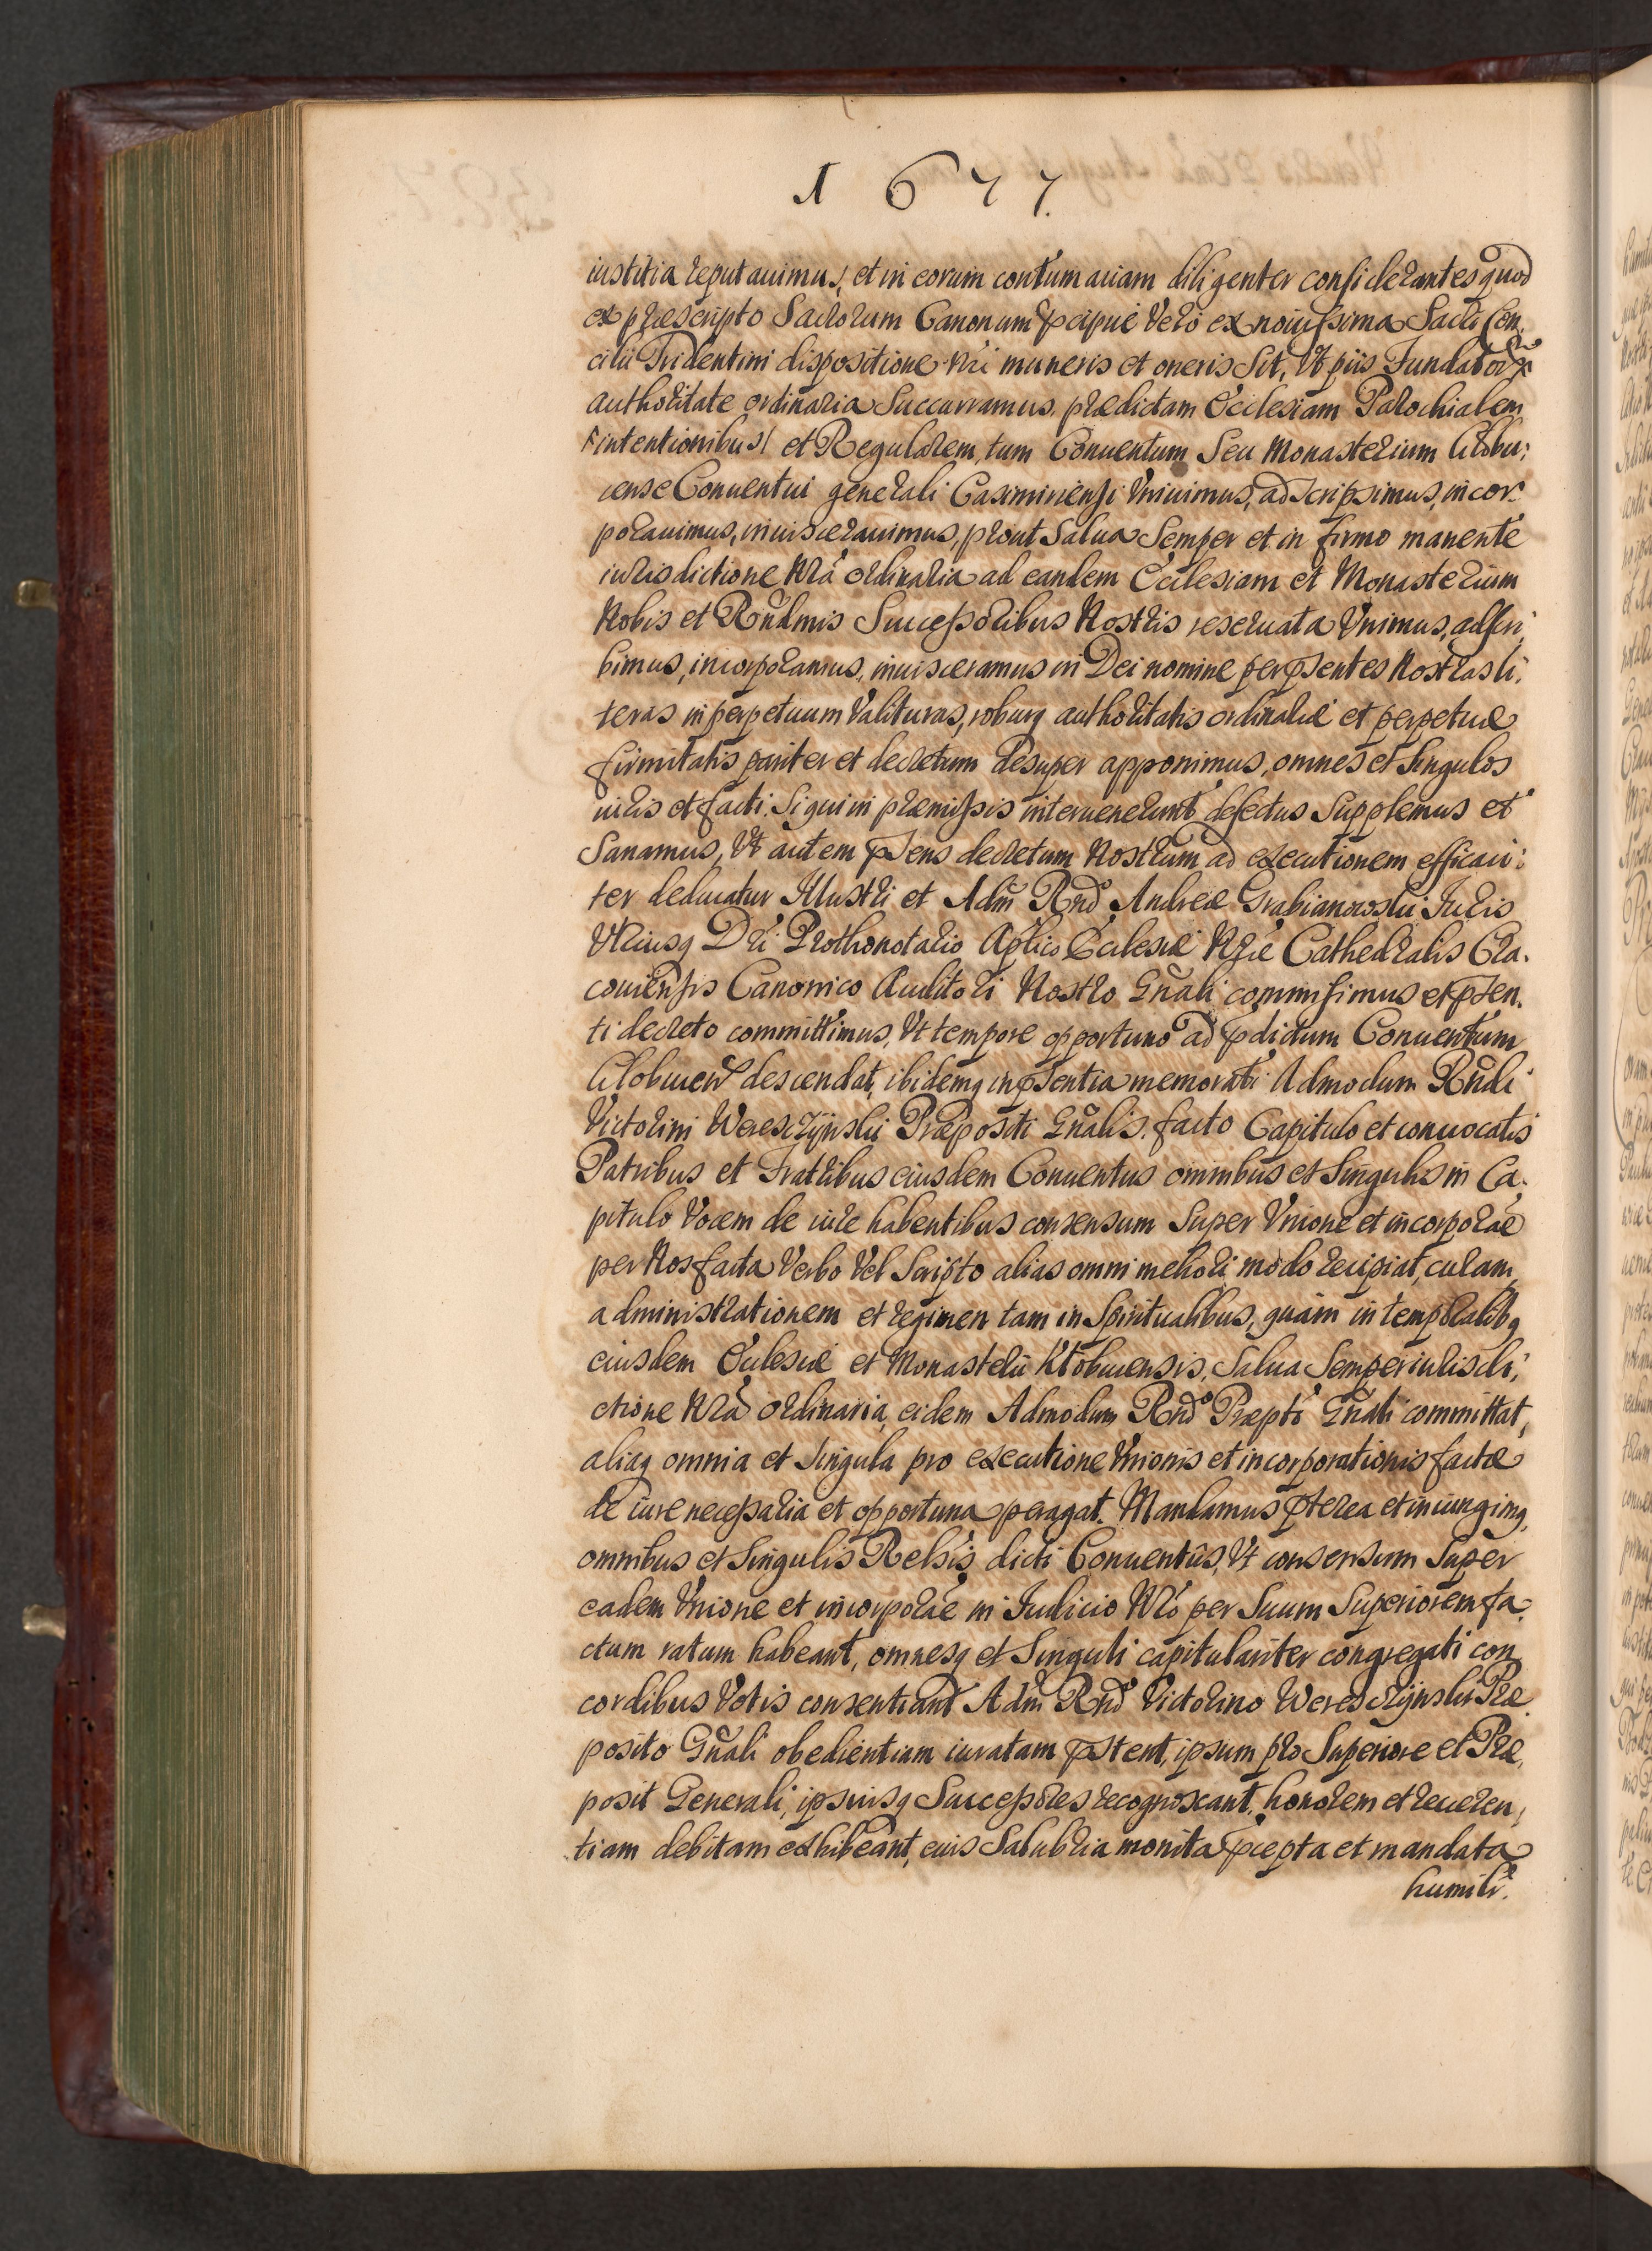 1677.
iustitia reputauimus, et in eorum contumaciam diligenter considerantes quod
ex præscripto Sacrorum Canonum pcipuè Verò ex nouissima Sacri Con,
cilii Tridentini dispositione nri muneris et oneris Sit, Vt piis Fundatorum
authoritate ordinaria Succurramus, prædictam Ecclesiam Parochialem
intentionibus/ et Regularem, tum Conuentum Seu Monasterium Clobu,
cense Conuentui generali Casimiriensi Vniuimus, adscripsimus, incor,
porauimus, inuiscerauimus, prout Salua Semper et in firmo manente
iurisdictione Nra ordinaria ad eandem Ecclesiam et Monasterium
Nobis et Rndmis Successoribus Nostris reseruata Vnimus, adscri,
bimus, incorporamus, inuisceramus in Dei nomine per psentes Nostras li,
teras in perpetuum Valituras, roburq authoritatis ordinariæ et perpetuæ
firmitatis pariter et decretum desuper apponimus, omnes et Singulos
iuris et facti. Si qui in præmissis interuenerunt defectus Supplemus et
Sanamus, Vt autem psens decretum Nostrum ad executionem efficaci,
ter deducatur Illustri et Adm Rndo Andreæ Grabianowski Iuris
Vtriusq Dri Prothonotario Aplico Ecclesiæ Nræ Cathedralis Cra,
couiensis Canonico Auditori Nostro Gnali commisimus et psen,
ti decreto committimus, Vt tempore opportuno ad pdictum Conuentum
Clobucen descendat, ibidemq in psentia memorati Admodum Rndi
Victorini Wereszczynski Præpositi Gnalis. facto Capitulo et conuocatis
Patribus et Fratribus eiusdem Conuentus omnibus et Singulis in Ca,
pitulo Vocem de iure habentibus consensum Super Vnione et incorporãe
per Nos facta Verbo Vel Scripto alias omni meliori modo recipiat, curam,
administrationem et regimen tam in Spiritualibus, quàm in temporalibq
eiusdem Ecclesiæ et Monasterii Klobucensis, Salua Semper iurisdi,
ctione Nra ordinaria, eidem Admodum Rndo Præpto Gnali committat,
aliaq omnia et Singula pro executione Vnionis et incorporationis factæ
de iure necessaria et opportuna peragat. Mandamus pterea et iniungimq,
omnibus et Singulis Relsis dicti Conuentûs, Vt consensum Super
eadem Vnione et incorporãe in Iudicio Nro per Suum Superiorem fa,
ctum ratum habeant, omnesq et Singuli capitulariter congregati con,
cordibus Votis consentiant Adm Rndo Victorino Wereszczynski Præ,
posito Gnali obedientiam iuratam pstent, ipsum pro Superiore et Præ,
posit Generali, ipsiusq Successores recognoscant, honorem et reueren,
tiam debitam exhibeant, eius Salubria monita pcepta et mandata
humili.